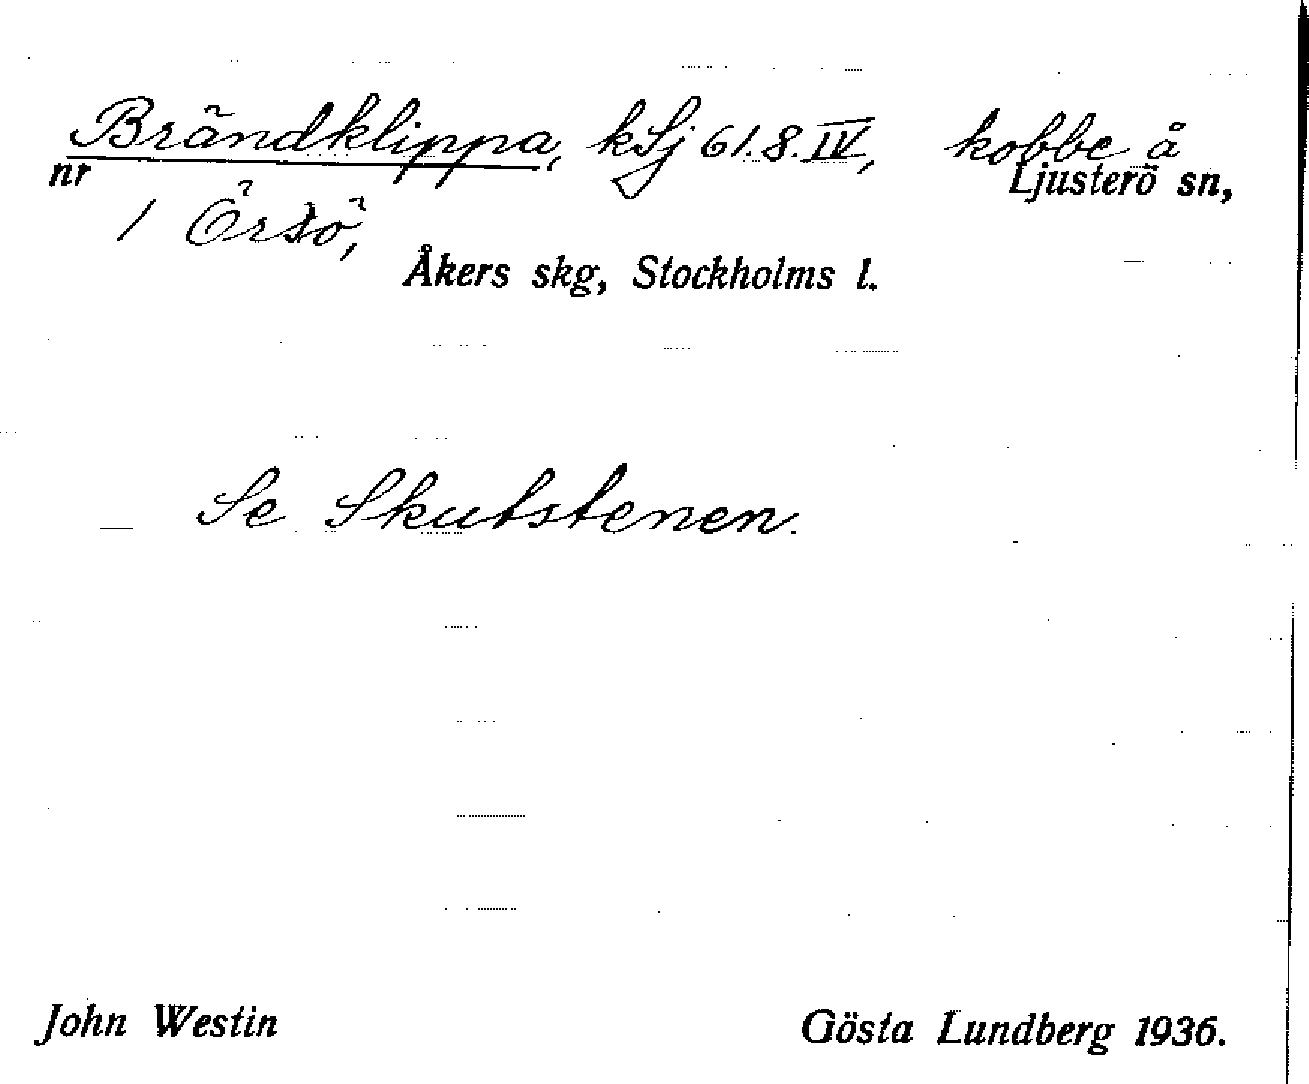 Brändklippa, kSj 61.8.IV, kobbe å
nr Ljusterö sn,
1 Örsö,
Åkers skg, Stockholms l.
Se Skutstenen.
John Westin Gösta Lundberg 1936.